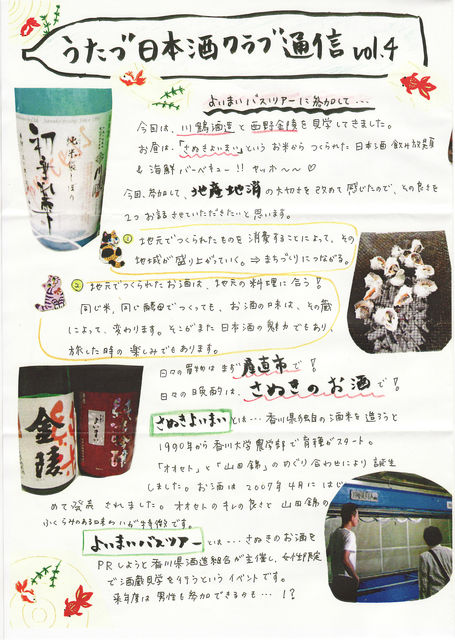 うたづ日本酒クラブ通信 vol.4
よいまいバスツアーに参加して…
今回は、川鶴酒造と西野金陵を見学してきました。
お昼は、「さぬきよいまい」という お米から つくられた 日本酒 飲み放題
& 海鮮バーベキュー!! ヤッホ〜〜♡
今回、参加して、地産地消の大切さを 改めて 感じたので、その良さを
2つお話させていただきたいと思います。
① 地元でつくられたものを 消費することによって、その
地域が盛り上がっていく。⇒ まちづくりにつながる。
② 地元でつくられたお酒は、地元の料理に合う!
同じ米、同じ酵母でつくっても、お酒の味は、その蔵
によって、変わります。そこがまた 日本酒の魅力でもあり、
旅した時の 楽しみでもあります。
日々の買物は まず 産直市で!
日々の晩酌は、さぬきのお酒で!
さぬきよいまい とは… 香川県独自の酒米を造ろうと
1990年から香川大学農学部で育種がスタート。
「オオセト」と「山田錦」のめぐり合わせにより 誕生
しました。お酒は 2007年4月に はじ
めて 発売 されました。オオセトのキレの良さと 山田錦の
ふくらみのある味わいが特徴です。
よいまいバスツアー とは… さぬきのお酒を
PRしようと香川県酒造組合が主催し、女性限定
で酒蔵見学を行うという イベントです。
来年度は 男性も参加できるかも… !?
初しぼり
純米袋しぼり
川鶴
金陵